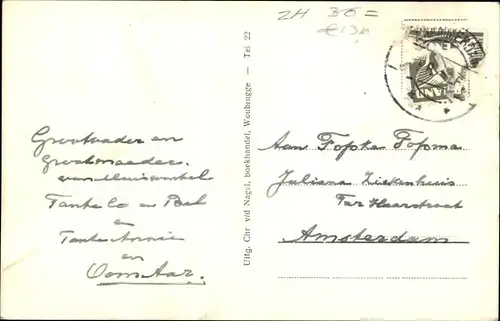 ZH 30=
Grootvader en
Grootmoeder.
Tante Co en Bab
en
Tante
en
Oom Aar.
Uitg. Chr v/d Nagel, boekhandel, Woubrugge — Tel 22
Aan Fopka Fopma
Juliana Ziekenhuis
Ter Haarstraat
Amsterdam